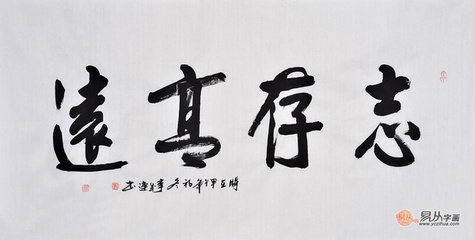 志存高遠
甲午年初冬
易从字画
www.yczihua.com